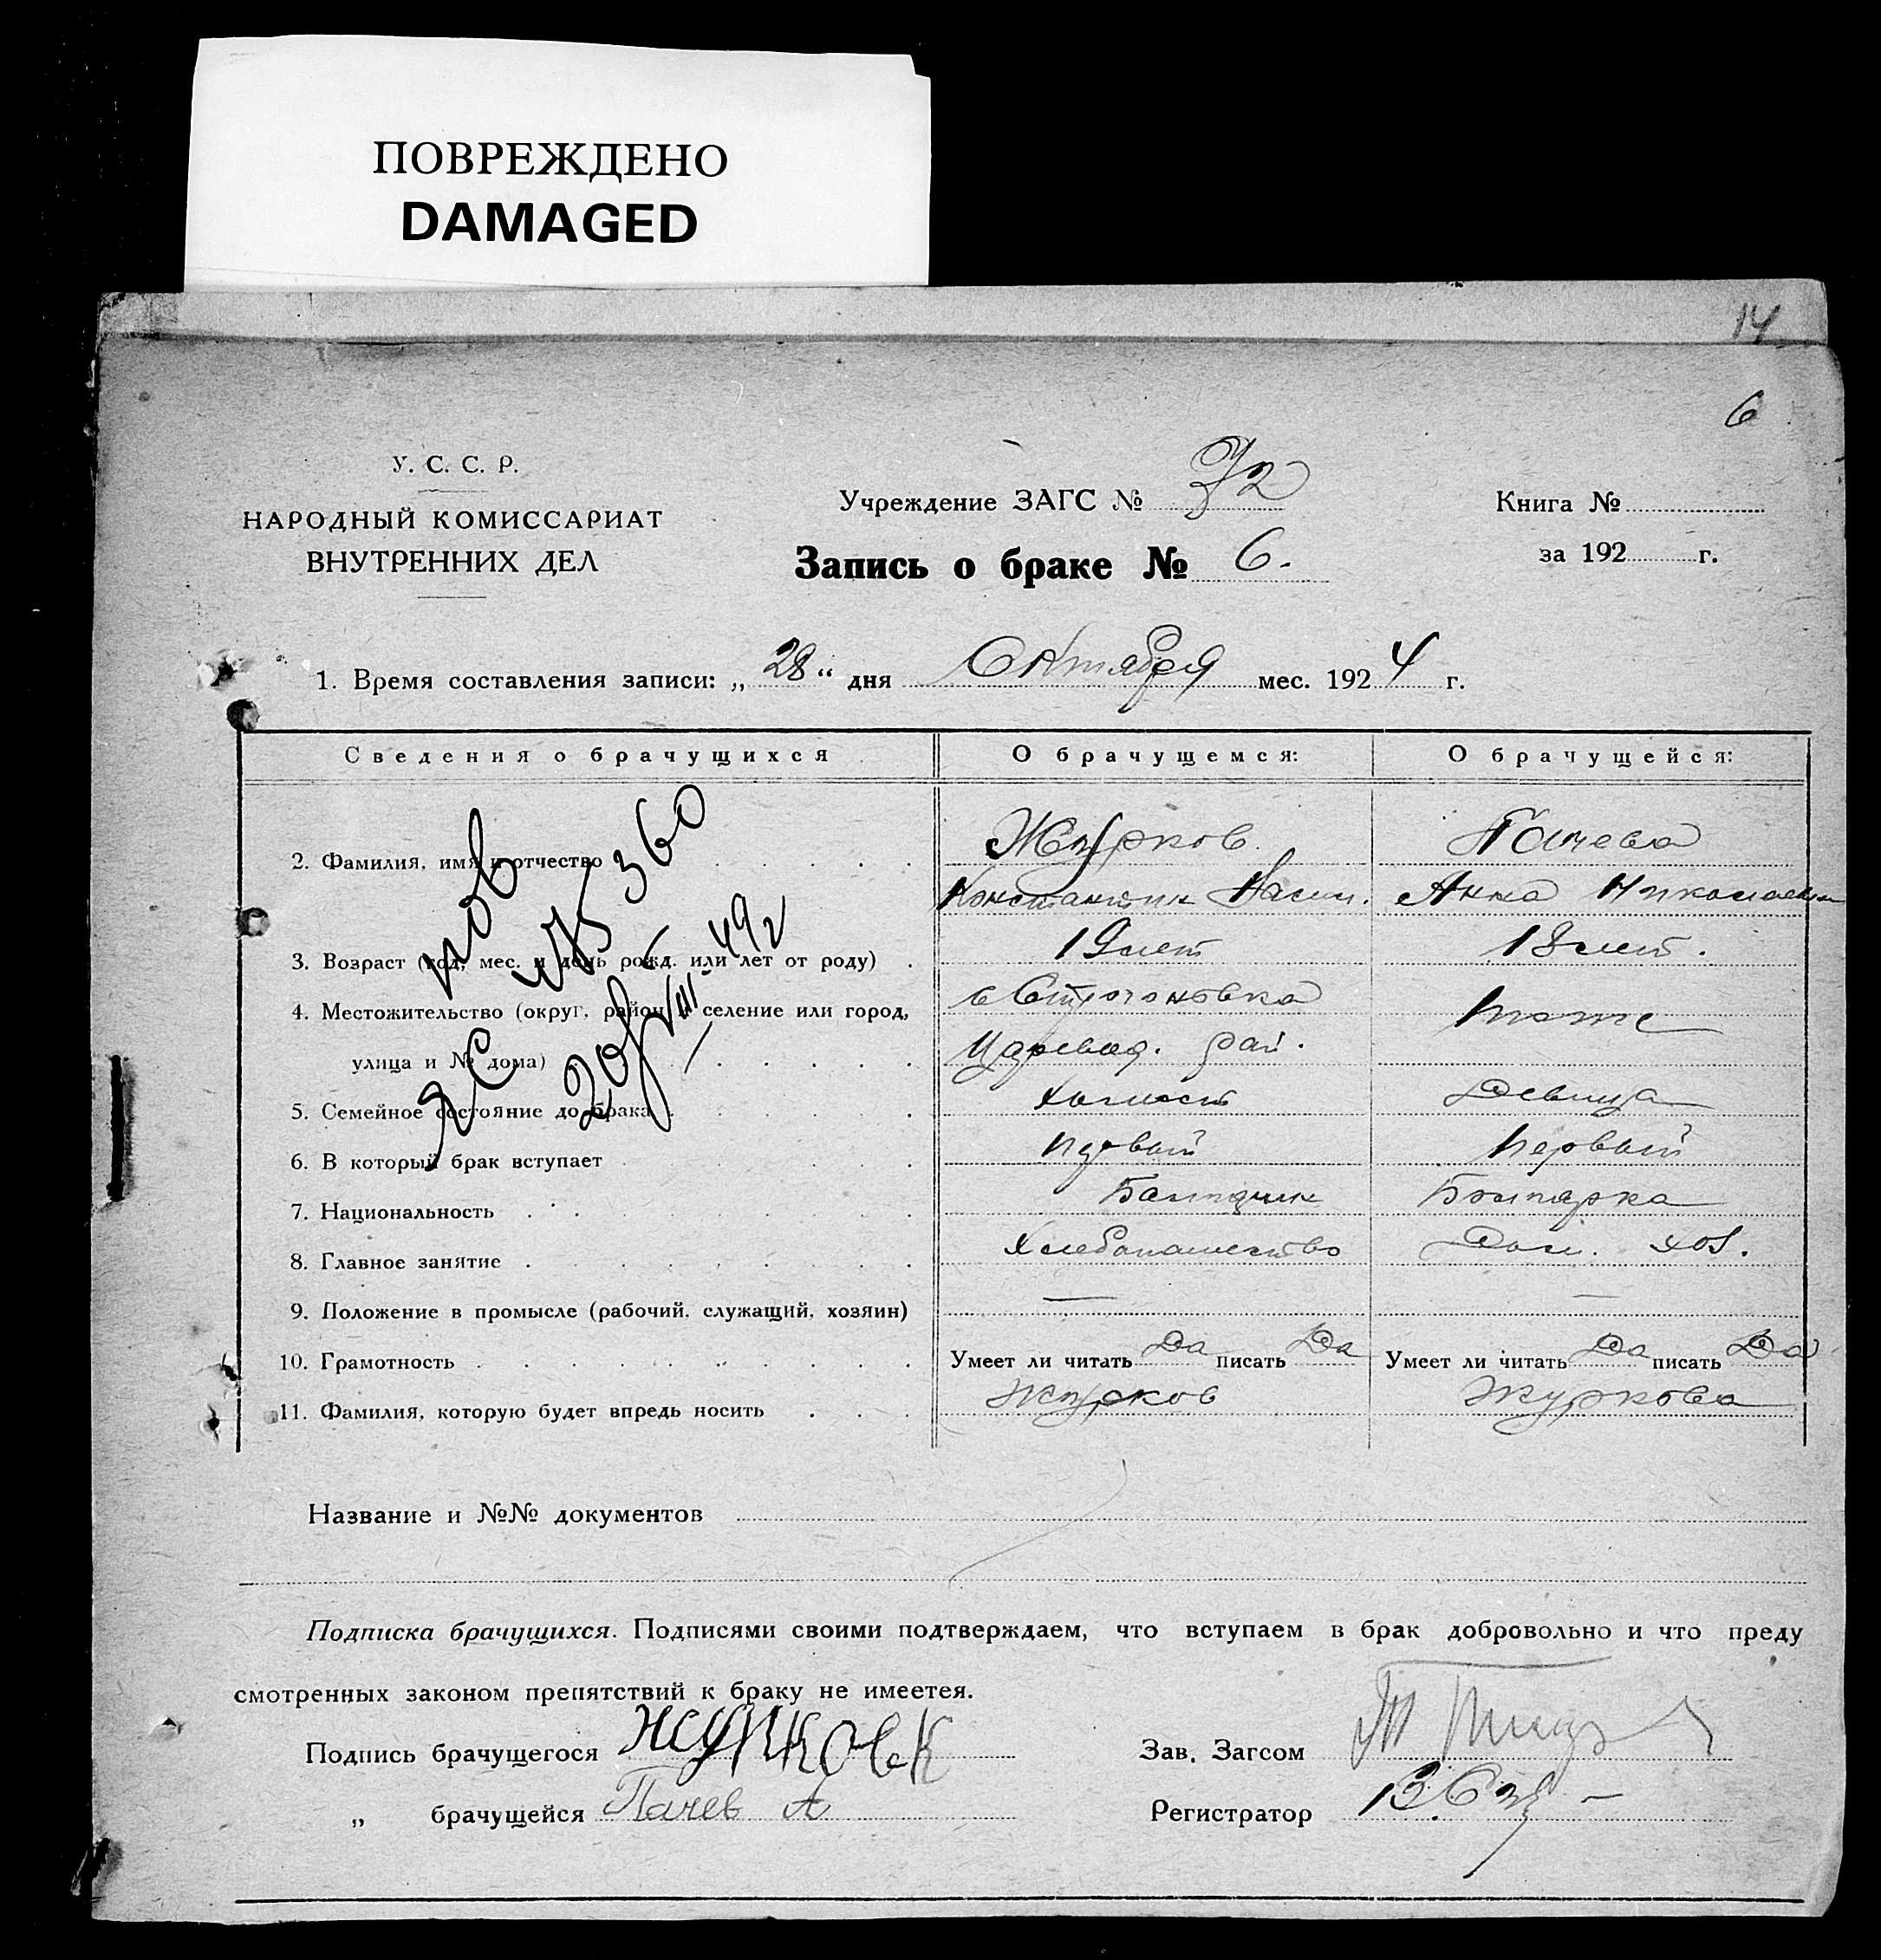 ПОВРЕЖДЕНО
DAMAGED
14
6
У. С. С. Р.
НАРОДНЫЙ КОМИССАРИАТ
ВНУТРЕННИХ ДЕЛ
Учреждение ЗАГС № 72
Запись о браке № 6.
Книга №
за 192 г.
1. Время составления записи: „28“ дня Октября мес. 1924 г.
Сведения о брачущихся О брачущемся: О брачущейся:
2. Фамилия, имя и отчество Журков Пачева
Константин Анна Николаевн
3. Возраст (год, мес. и день рожд. или лет от роду) 19 лет 18 лет.
4. Местожительство (округ, район и селение или город, с Строгоновка тоже
улица и № дома) Царевод. рай.
5. Семейное состояние до брака холост Девица
6. В который брак вступает первый первый
7. Национальность Болгарин Болгарка
8. Главное занятие Хлебопашество Дом. хоз.
9. Положение в промысле (рабочий, служащий, хозяин) — —
10. Грамотность Умеет ли читать Да писать Да Умеет ли читать Да писать Да
11. Фамилия, которую будет впредь носить Журков Журкова
360
Название и №№ документов
Подписка брачущихся. Подписями своими подтверждаем, что вступаем в брак добровольно и что преду
смотренных законом препятствий к браку не имеется.
Подпись брачущегося Журков К Зав. Загсом
„ брачущейся Пачев А Регистратор